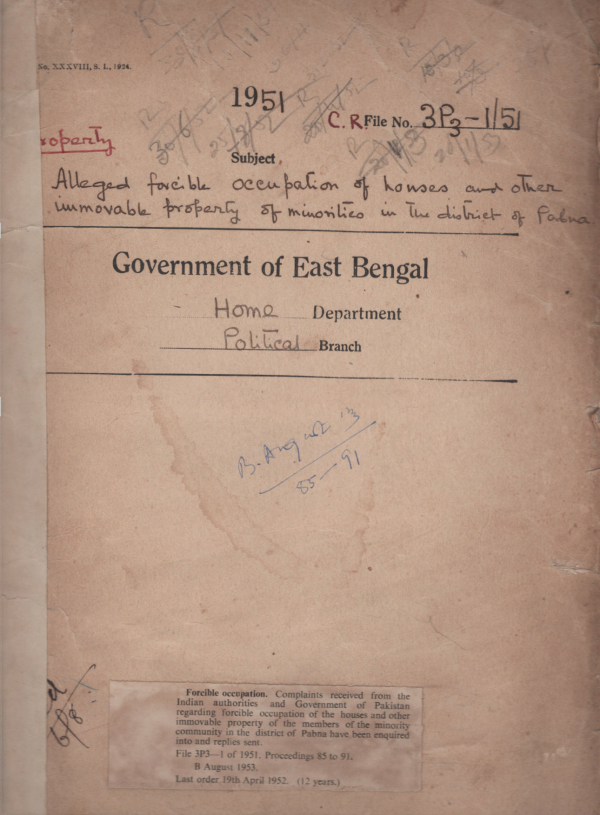 No. XXXVIII, S. L., 1924.
1951
C.R. File No. 3P3-1/51
roperty
Subject.
Alleged forcible occupation of houses and other
immovable property of minorities in the district of Pabna
Government of East Bengal
Home Department
Political Branch
B. August 53
85-91
6/8
Forcible occupation. Complaints received from the
Indian authorities and Government of Pakistan
regarding forcible occupation of the houses and other
immovable property of the members of the minority
community in the district of Pabna have been enquired
into and replies sent.
File 3P3—1 of 1951. Proceedings 85 to 91.
B August 1953.
Last order 19th April 1952. (12 years.)